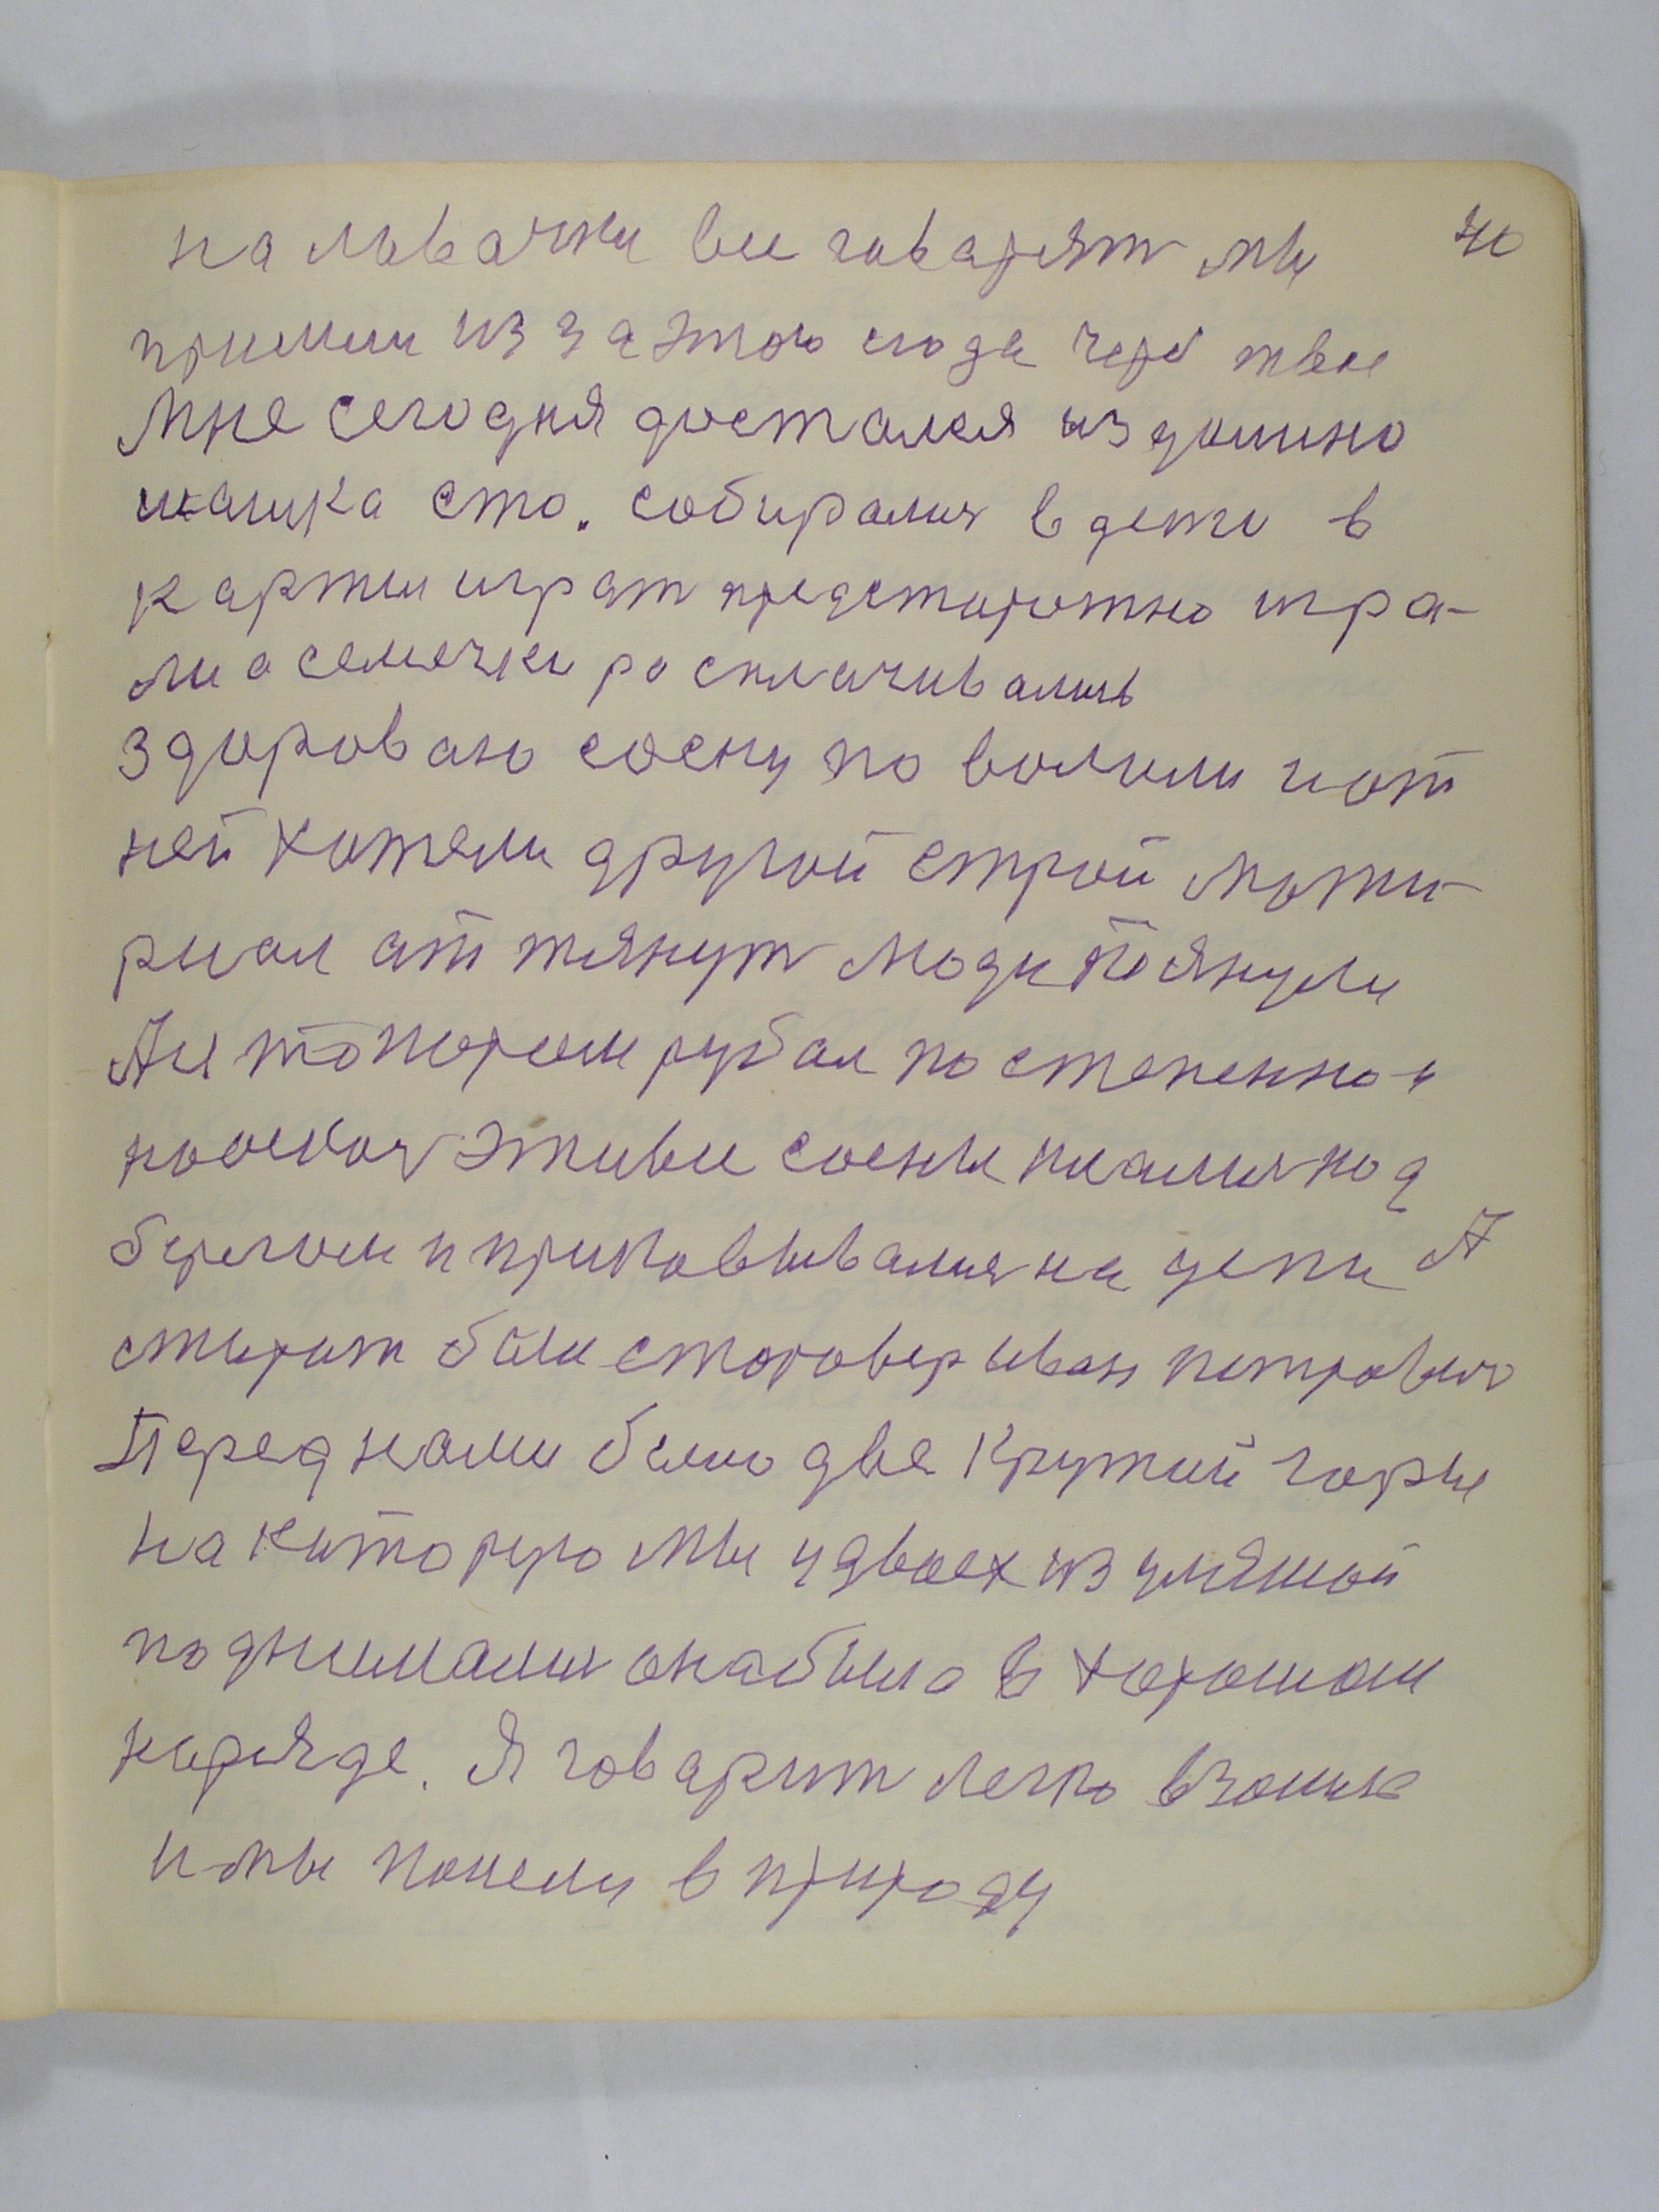 на лавачки вы гаварят мы 40
пришли из за этого сюда через твое
Мне сегодня достался из домино
шашка сто. собирались в дети в
карты играт предсторотно игра-
ли а семечки росплачивались
здоровою сосну по волили и от
ней хотели другой строй мати-
риал от тянут люди тянули
Аи топором рубал постепенно и
эти все сосны под
берегом и приковывались на цепи А
старит был старовер иван петрович
Перед нами было две крутый горы
на которую мы удвоех из
поднимались она была в хорошом
наряде. Я говарит легко
и мы пошли в природу